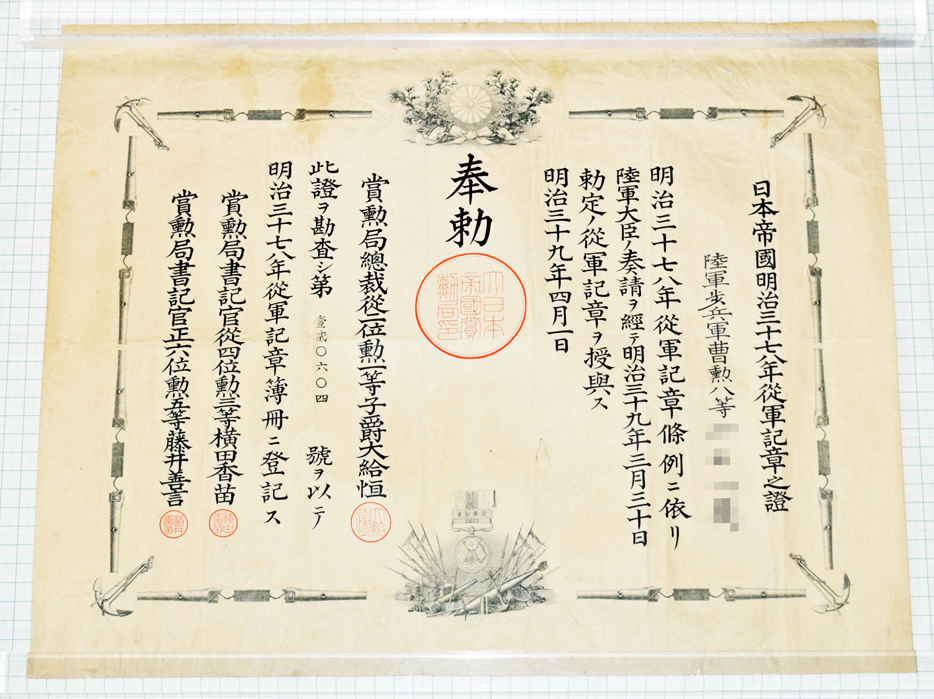 日本帝國明治三十七八年從軍記章之證
陸軍歩兵軍曹勲八等
明治三十七八年從軍記章條例ニ依リ
陸軍大臣ノ奏請ヲ經テ明治三十九年三月三十日
勅定ノ從軍記章ヲ授與ス
明治三十九年四月一日
奉勅
大日本
帝國賞
勲局印
賞勲局總裁從二位勲一等子爵大給恒
此證ヲ勘査シ第壹貳〇六〇四號ヲ以テ
明治三十七八年從軍記章簿冊ニ登記ス
賞勲局書記官從四位勲三等横田香苗
賞勲局書記官正六位勲五等藤井善言